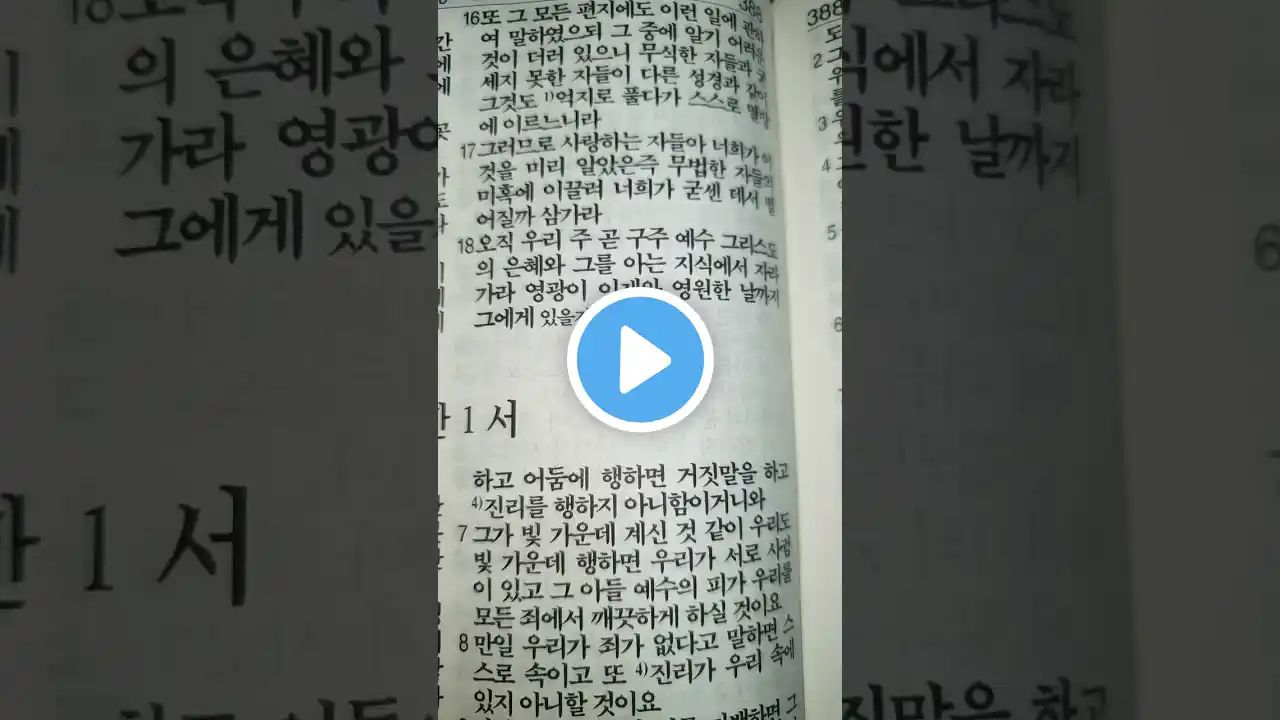 388
16 또 그 모든 편지에도 이런 일에 관하
여 말하였으되 그 중에 알기 어려운
것이 더러 있으니 무식한 자들과 굳
세지 못한 자들이 다른 성경과 같이
그것도 1)억지로 풀다가 스스로 멸망
에 이르느니라
17 그러므로 사랑하는 자들아 너희가 이
것을 미리 알았은즉 무법한 자들의
미혹에 이끌려 너희가 굳센 데서 떨
어질까 삼가라
18 오직 우리 주 곧 구주 예수 그리스도
의 은혜와 그를 아는 지식에서 자라
가라 영광이 이제와 영원한 날까지
그에게 있을
1 서
하고 어둠에 행하면 거짓말을 하고
4)진리를 행하지 아니함이거니와
7 그가 빛 가운데 계신 것 같이 우리도
빛 가운데 행하면 우리가 서로 사귐
이 있고 그 아들 예수의 피가 우리를
모든 죄에서 깨끗하게 하실 것이요
8 만일 우리가 죄가 없다고 말하면 스
스로 속이고 또 4)진리가 우리 속에
있지 아니할 것이요